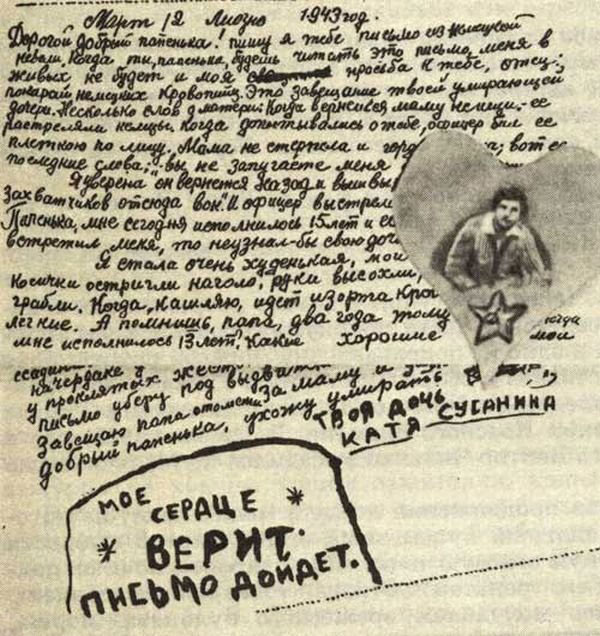 Март 12 Лиозно 1943 год.
Дорогой добрый папенька! пишу я тебе письмо из немецкой
неволи. Когда ты, папенька, будешь читать это письмо, меня в
живых не будет и моя просьба к тебе, отец:
покарай немецких кровопийц. Это завещание твоей умирающей
дочери. Несколько слов о матери. Когда вернешься маму не ищи. ее
растреляли немцы. Когда допытывались о тебе, офицер бил ее
плеткою по лицу. Мама не стерпела и вот ее
последние слова: „вы не запугаете меня
Я уверена он вернется назад и вышвыр
захватчиков отсюда вон. И офицер выстрел
Папенька, мне сегодня исполнилось 15 лет и ес
встретил меня, то неузнал-бы свою доч
Я стала очень худенькая, мои
косички остригли наголо, руки высохли,
грабли. Когда кашляю, идет изо рта кро
легкие. А помнишь, папа, два года тому когда
мне исполнилось 13 лет. Какие хорошие мои
на чердаке у
у проклятых жест
письмо уберу под
Завещаю папа отомсти за маму и
добрый папенька, ухожу умирать
твоя дочь
Катя Сусанина
МОЕ
СЕРДЦЕ
ВЕРИТ.
ПИСЬМО ДОЙДЕТ.